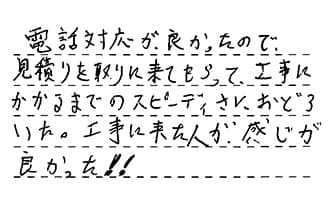 電話対応が良かったので、
見積りを取りに来てもらって、工事に
かかるまでのスピーディさに、おどろ
いた。工事に来た人が、感じが
良かった!!